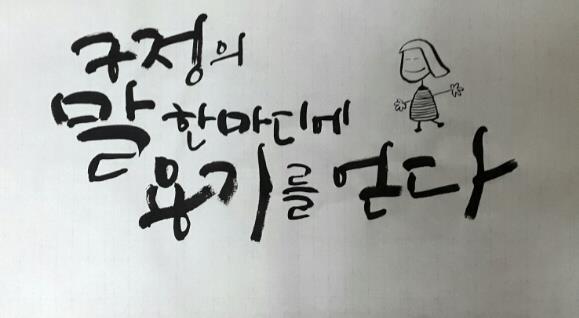 구정의
말 한마디에
용기를 얻다